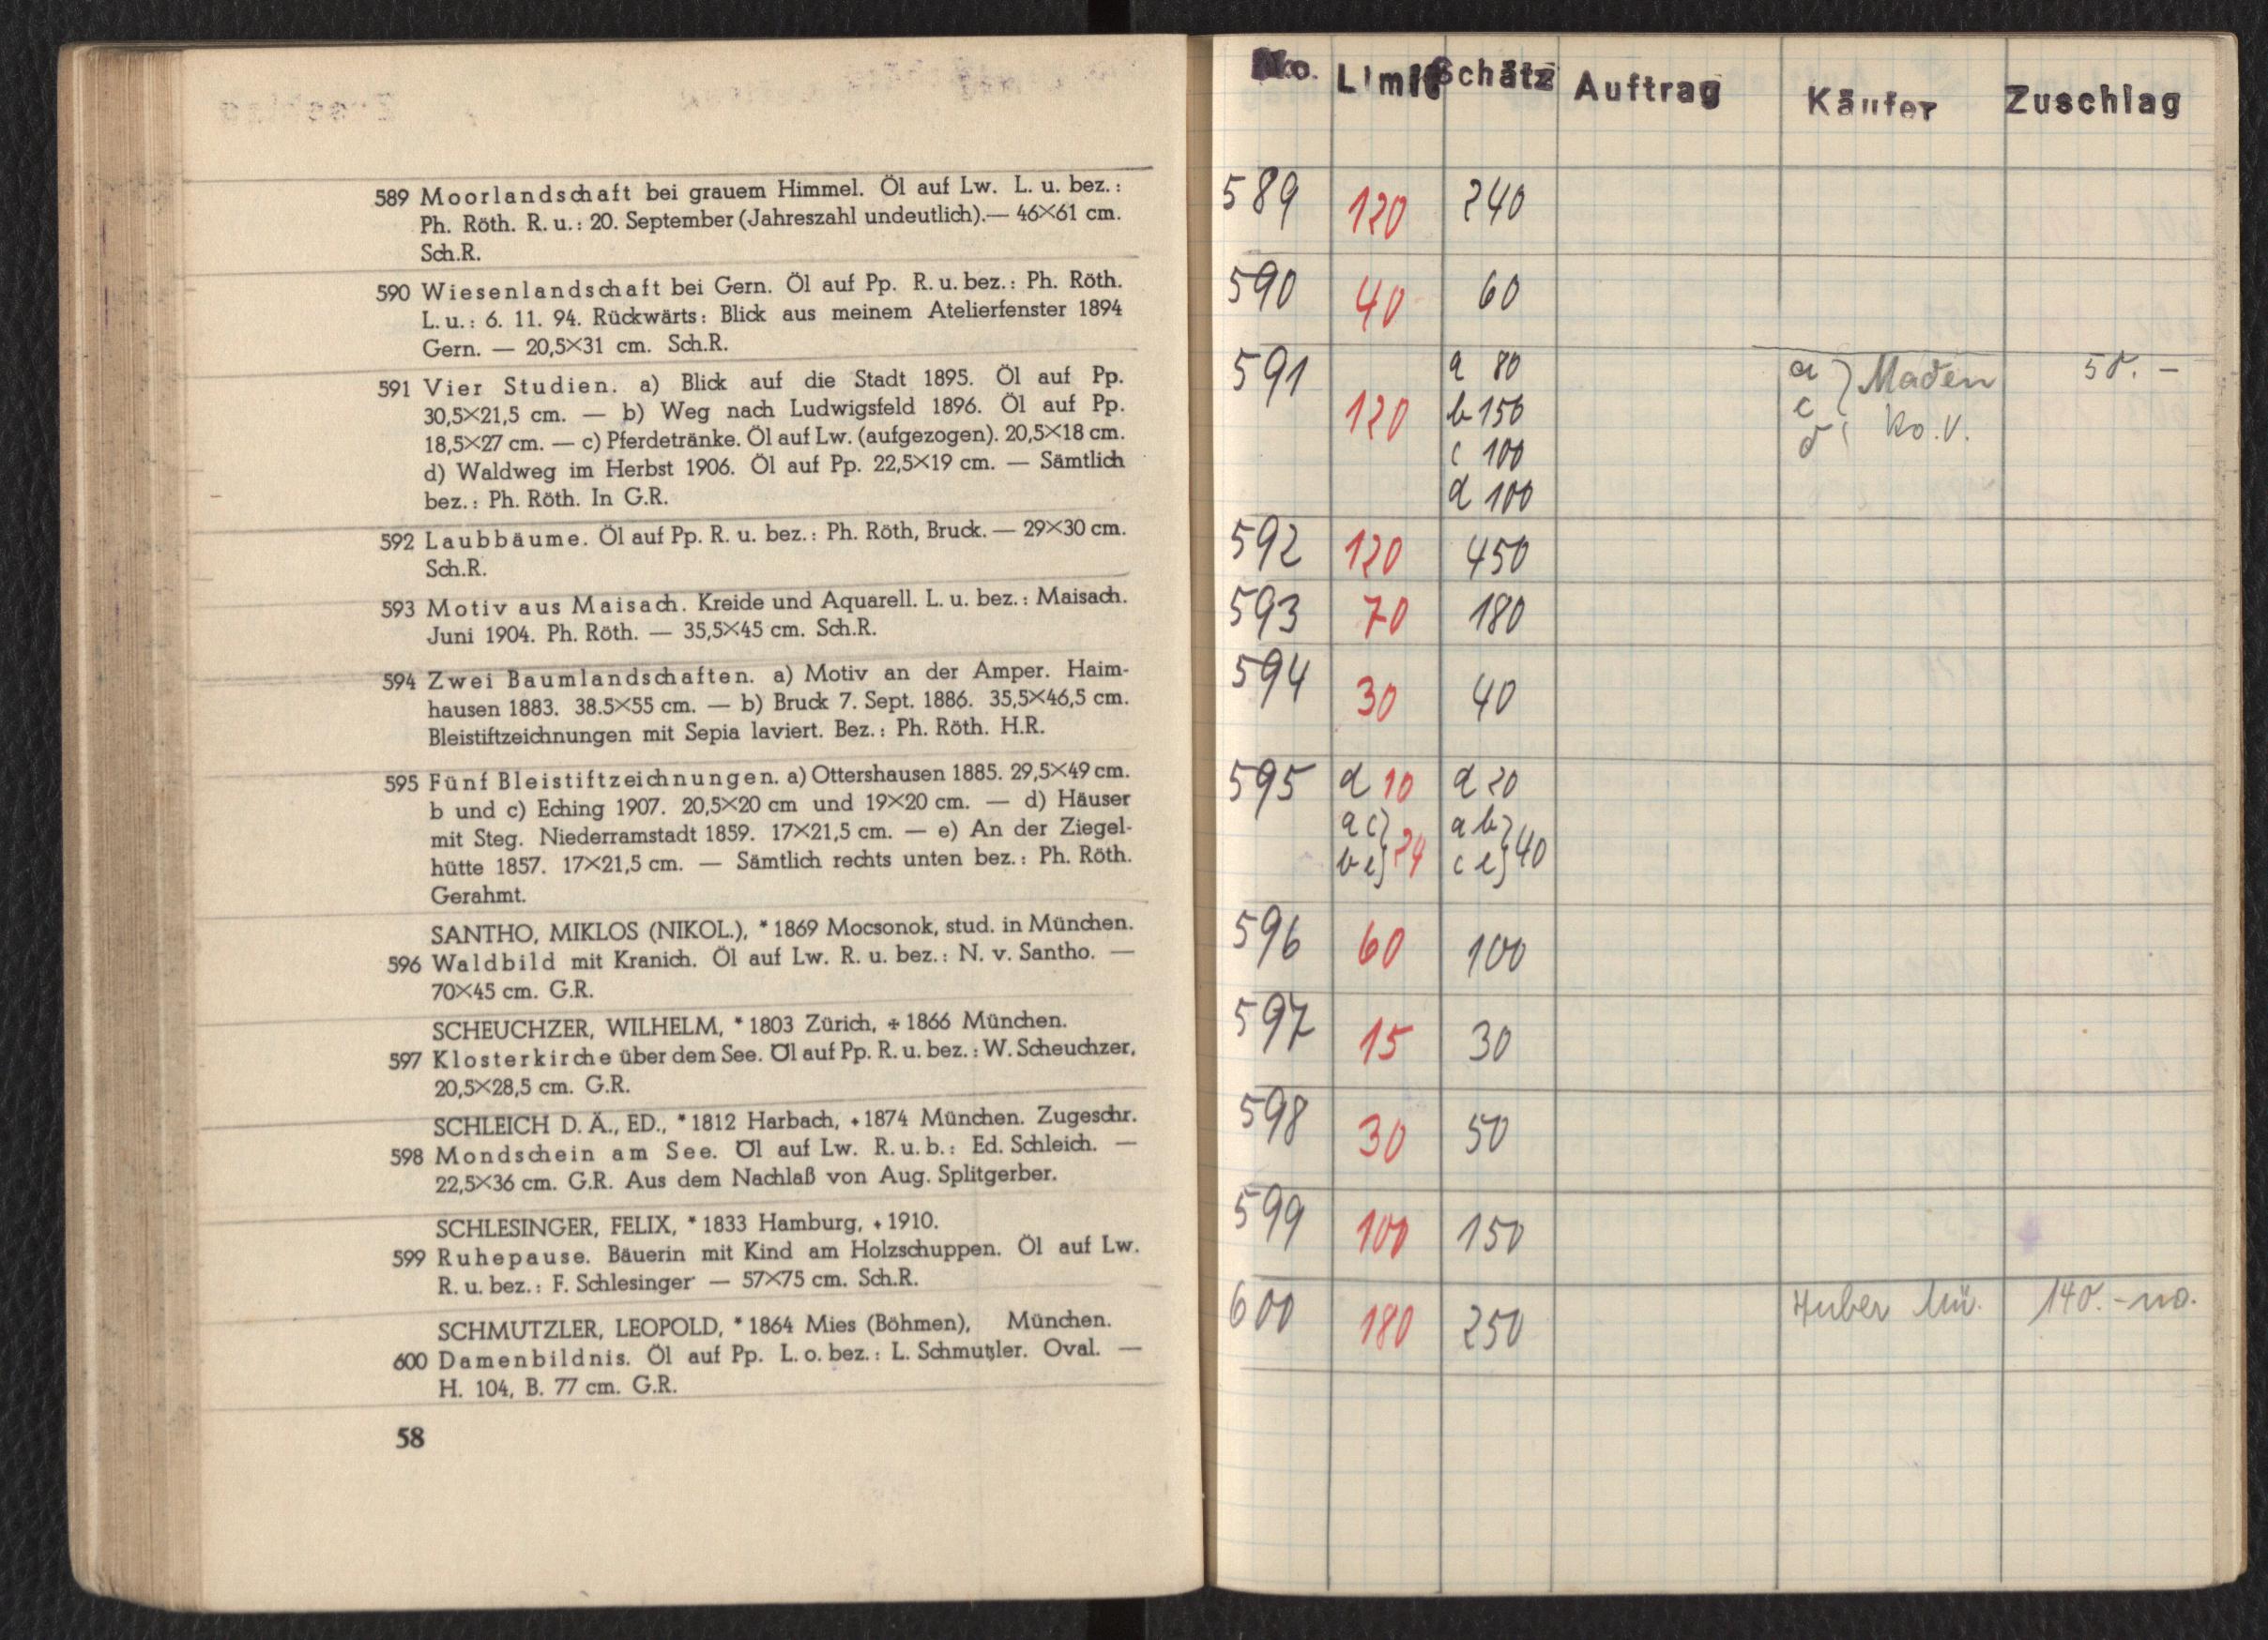 589 Moorlandschaft bei grauem Himmel. Öl auf Lw. L. u. bez.:
Ph. Röth. R. u.: 20. September (Jahreszahl undeutlich).— 46×61 cm.
Sch.R.
590 Wiesenlandschaft bei Gern. Öl auf Pp. R. u. bez.: Ph. Röth.
L. u.: 6. 11. 94. Rückwärts: Blick aus meinem Atelierfenster 1894
Gern. — 20,5×31 cm. Sch.R.
591 Vier Studien. a) Blick auf die Stadt 1895. Öl auf Pp.
30,5×21,5 cm. — b) Weg nach Ludwigsfeld 1896. Öl auf Pp.
18,5×27 cm. — c) Pferdetränke. Öl auf Lw. (aufgezogen). 20,5×18 cm.
d) Waldweg im Herbst 1906. Öl auf Pp. 22,5×19 cm. — Sämtlich
bez.: Ph. Röth. In G.R.
592 Laubbäume. Öl auf Pp. R. u. bez.: Ph. Röth, Bruck. — 29×30 cm.
Sch.R.
593 Motiv aus Maisach. Kreide und Aquarell. L. u. bez.: Maisach.
Juni 1904. Ph. Röth. — 35,5×45 cm. Sch.R.
594 Zwei Baumlandschaften. a) Motiv an der Amper. Haim-
hausen 1883. 38.5×55 cm. — b) Bruck 7. Sept. 1886. 35,5×46,5 cm.
Bleistiftzeichnungen mit Sepia laviert. Bez.: Ph. Röth. H.R.
595 Fünf Bleistiftzeichnungen. a) Ottershausen 1885. 29,5×49 cm.
b und c) Eching 1907. 20,5×20 cm und 19×20 cm. — d) Häuser
mit Steg. Niederramstadt 1859. 17×21,5 cm. — e) An der Ziegel-
hütte 1857. 17×21,5 cm. — Sämtlich rechts unten bez.: Ph. Röth.
Gerahmt.
SANTHO, MIKLOS (NIKOL.), * 1869 Mocsonok, stud. in München.
596 Waldbild mit Kranich. Öl auf Lw. R. u. bez.: N. v. Santho. —
70×45 cm. G.R.
SCHEUCHZER, WILHELM, * 1803 Zürich, + 1866 München.
597 Klosterkirche über dem See. Öl auf Pp. R. u. bez.: W. Scheuchzer,
20,5×28,5 cm. G.R.
SCHLEICH D. Ä., ED., * 1812 Harbach, + 1874 München. Zugeschr.
598 Mondschein am See. Öl auf Lw. R. u. b.: Ed. Schleich. —
22,5×36 cm. G.R. Aus dem Nachlaß von Aug. Splitgerber.
SCHLESINGER, FELIX, * 1833 Hamburg, + 1910.
599 Ruhepause. Bäuerin mit Kind am Holzschuppen. Öl auf Lw.
R. u. bez.: F. Schlesinger — 57×75 cm. Sch.R.
SCHMUTZLER, LEOPOLD, * 1864 Mies (Böhmen), München.
600 Damenbildnis. Öl auf Pp. L. o. bez.: L. Schmutzler. Oval. —
H. 104, B. 77 cm. G.R.
58
No. Limit Schätz Auftrag Käufer Zuschlag
589 120 240
590 40 60
591 a 80 a } 50.-
120 b 150 c Ko.V.
c 100 d
d 100
592 120 450
593 70 180
594 30 40
595 d 10 d 20
a c } 24 a b } 40
b e c e
596 60 100
597 15 30
598 30 50
599 100 150
600 180 250 Huber Mü. 140.-